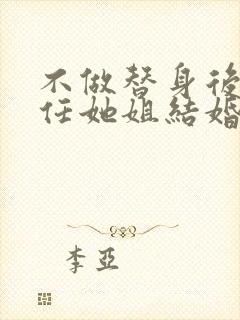 不做替身後
任她姐結婚
李亞